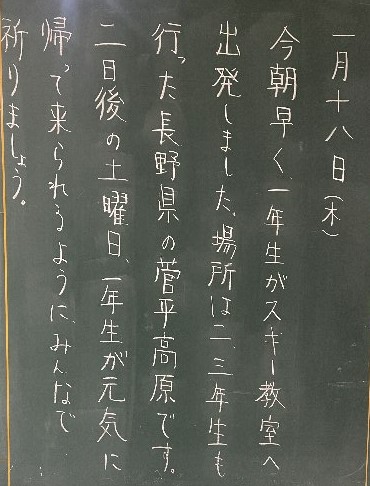 一月十八日(木)
今朝早く、一年生がスキー教室へ
出発しました。場所は二、三年生も
行った長野県の菅平高原です。
二日後の土曜日、一年生が元気に
帰って来られるように、みんなで
祈りましょう。